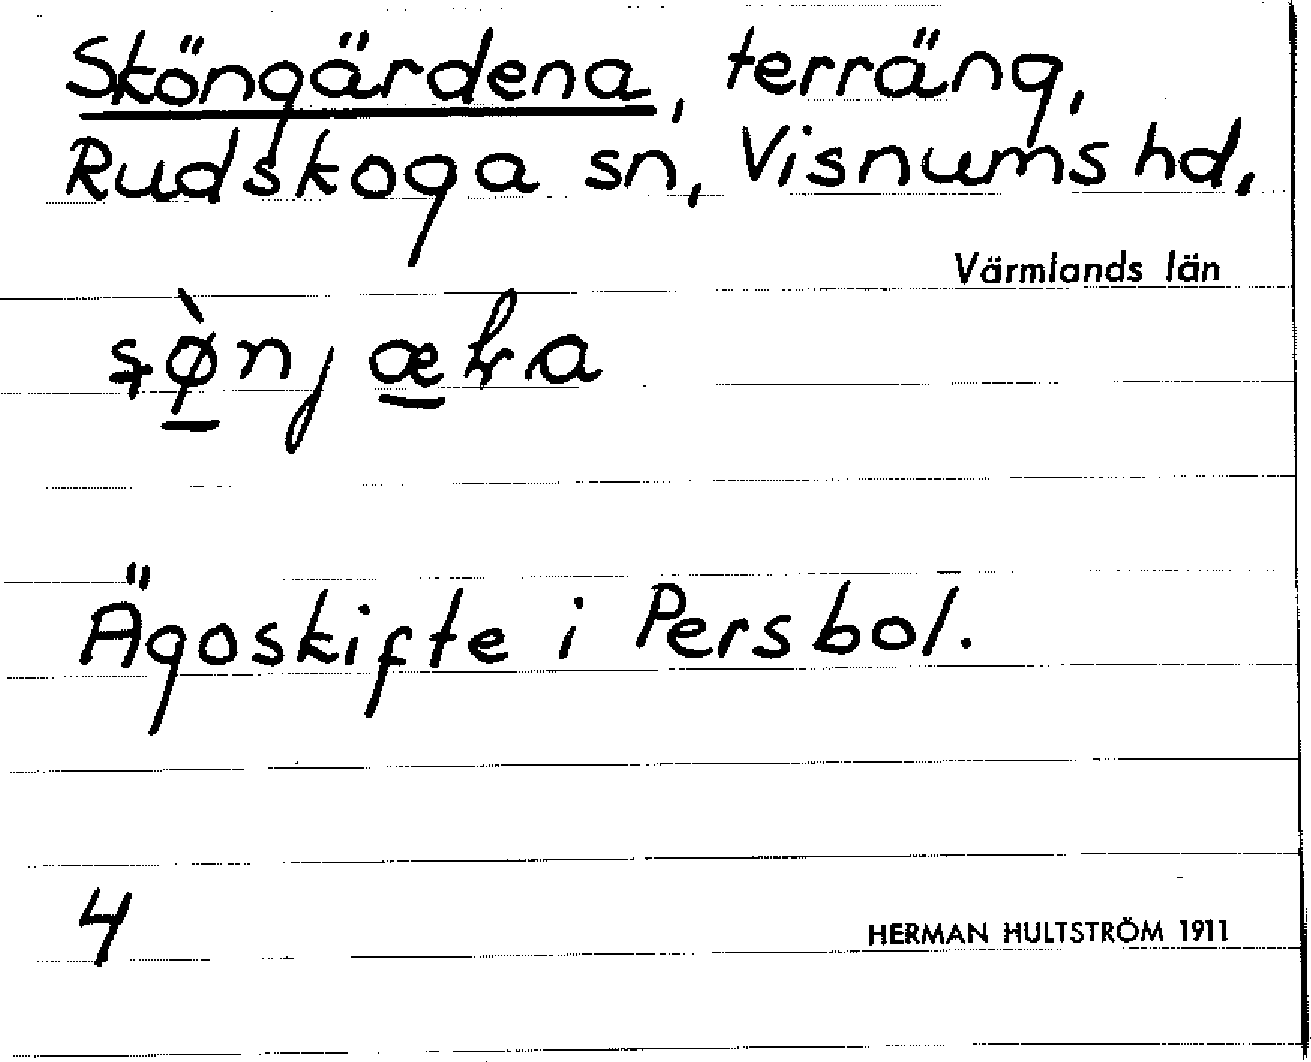 Sköngärdena, terräng,
Rudskoga sn, Visnums hd.
Värmlands län
Ägoskifte i Persbol.
4
HERMAN HULTSTRÖM 1911